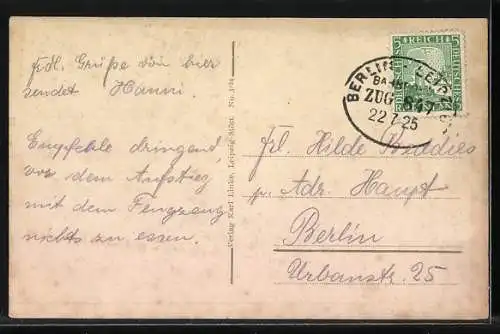 Frdl. Grüße von hier
sendet Hanni.
Empfehle dringend,
vor dem Aufstieg
mit dem Flugzeug
nichts zu essen.
Verlag Karl Linke, Leipzig-Stött.
DEUTSCHES REICH
BERLIN - LEIPZIG
BAHNPOST
ZUG 849
22 7.25
Frl. Hilde
p. Adr. Haupt
Berlin
Urbanstr. 25